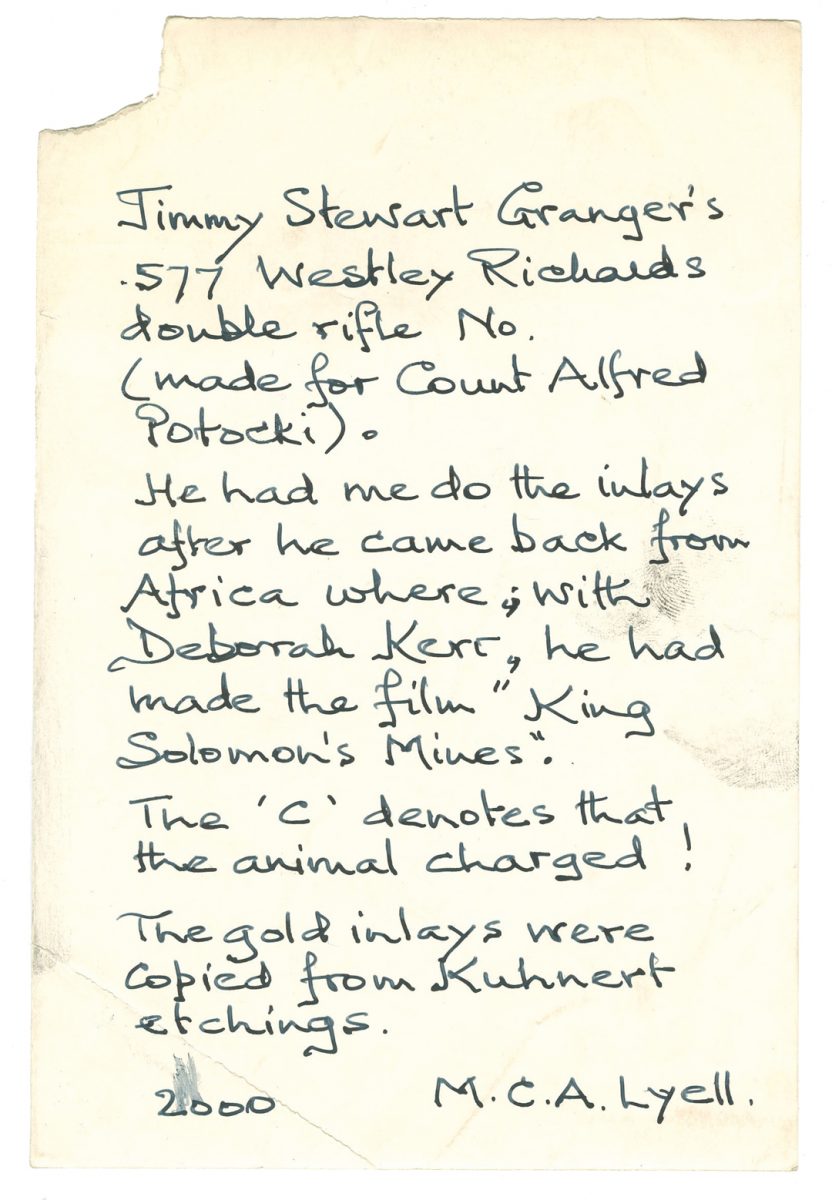 Jimmy Stewart Granger's
.577 Westley Richards
double rifle No.
(made for Count Alfred
Potocki).
He had me do the inlays
after he came back from
Africa where, with
Deborah Kerr, he had
made the film "King
Solomon's Mines".
The 'C' denotes that
the animal charged!
The gold inlays were
copied from Kuhnert
etchings.
2000 M.C.A. Lyell.